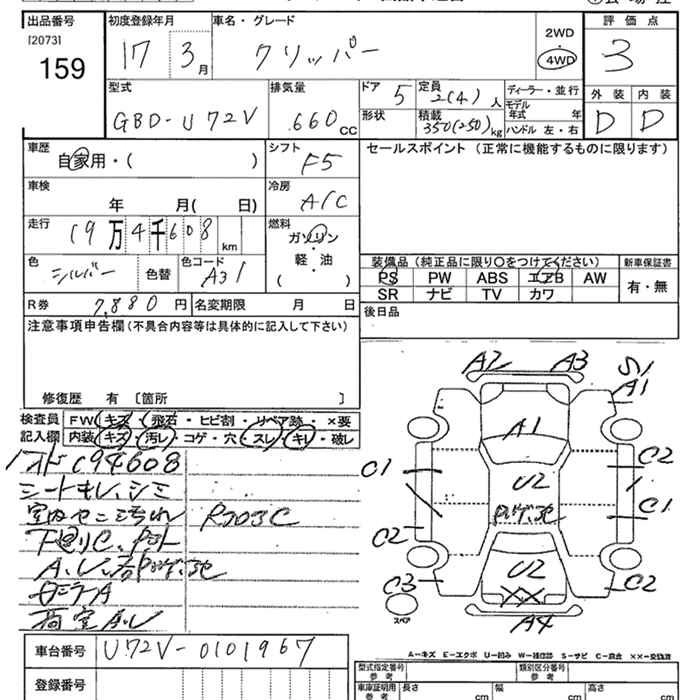 出品番号 初度登録年月 車名・グレード 評価点
[2073] 17 3月 クリッパー 2WD 3
159 4WD
型式 排気量 ドア 5 定員 2(4)人 ディーラー・並行 外装 内装
GBD-U72V 660cc 形状 積載 350(250)kg モデル年式 年 D D
ハンドル 左・右
車歴 シフト F5 セールスポイント (正常に機能するものに限ります)
自家用・( )
車検 年 月( 日) 冷房 A/C
走行 19万4千608km 燃料
ガソリン
軽・油
( )
色 シルバー 色替 色コード A31
装備品(純正品に限り○をつけてください) 新車保証書
PS PW ABS エアB AW 有・無
SR ナビ TV カワ
R券 7,880円 名変期限 月 日 後日品
注意事項申告欄(不具合内容等は具体的に記入して下さい)
修復歴 有 [箇所 ]
検査員 FW キズ・飛石・ヒビ割・リペア跡・×要
記入欄 内装 キズ・汚レ・コゲ・穴・スレ・キレ・破レ
C94608
シートキレ、シミ
R703C
A2 A3 S1
A1
A1
C1 C2
U2
C1
C2
U2
C3 C2
スペア
A4
A-キズ E-エクボ U-凹み W-補修跡 S-サビ C-腐食 ××-交換済
車台番号 U72V-0101967
登録番号
型式指定番号 参考 類別区分番号 参考
車庫証明用 参考 長さ cm 幅 cm 高さ cm